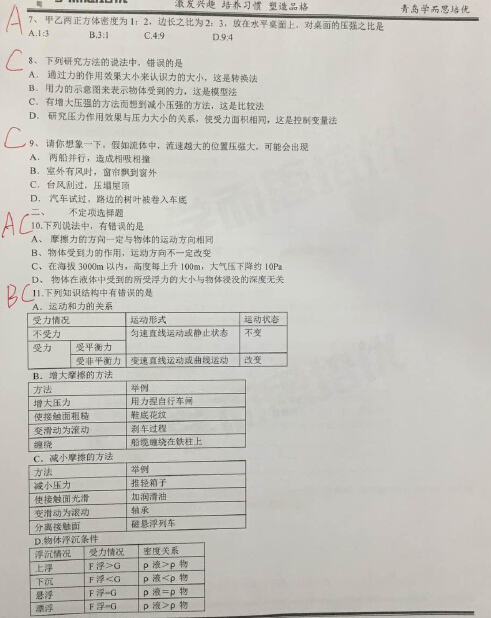 激发兴趣 培养习惯 塑造品格
青岛学而思培优
A
7、甲乙两正方体密度为1：2，边长之比为2：3，放在水平桌面上，对桌面的压强之比是
A.1:3 B.3:1 C.4:9 D.9:4
C
8、下列研究方法的说法中，错误的是
A. 通过力的作用效果大小来认识力的大小，这是转换法
B. 用力的示意图来表示物体受到的力，这是模型法
C. 有增大压强的方法而想到减小压强的方法，这是比较法
D. 研究压力作用效果与压力大小的关系，使受力面积相同，这是控制变量法
C
9、请你想象一下，假如流体中，流速越大的位置压强大，可能会出现
A. 两船并行，造成相吸相撞
B. 室外有风时，窗帘飘到窗外
C. 台风刮过，压塌屋顶
D. 汽车试过，路边的树叶被卷入车底
二、 不定项选择题
AC
10.下列说法中，有错误的是
A、摩擦力的方向一定与物体的运动方向相同
B、物体受到力的作用，运动方向不一定改变
C、在海拔3000m以内，高度每上升100m，大气压下降约10Pa
D、物体在液体中受到的所受浮力的大小与物体浸没的深度无关
BC
11.下列知识结构中有错误的是
A．运动和力的关系
受力情况 运动形式 运动状态
不受力 匀速直线运动或静止状态 不变
受力 受平衡力
受非平衡力 变速直线运动或曲线运动 改变
B．增大摩擦的方法
方法 举例
增大压力 用力捏自行车闸
使接触面粗糙 鞋底花纹
变滑动为滚动 刹车过程
缠绕 船缆缠绕在铁柱上
C．减小摩擦的方法
方法 举例
减小压力 推轻箱子
使接触面光滑 加润滑油
变滑动为滚动 轴承
分离接触面 磁悬浮列车
D.物体浮沉条件
浮沉情况 受力情况 密度关系
上浮 F浮>G ρ液>ρ物
下沉 F浮<G ρ液<ρ物
悬浮 F浮=G ρ液=ρ物
漂浮 F浮=G ρ液>ρ物